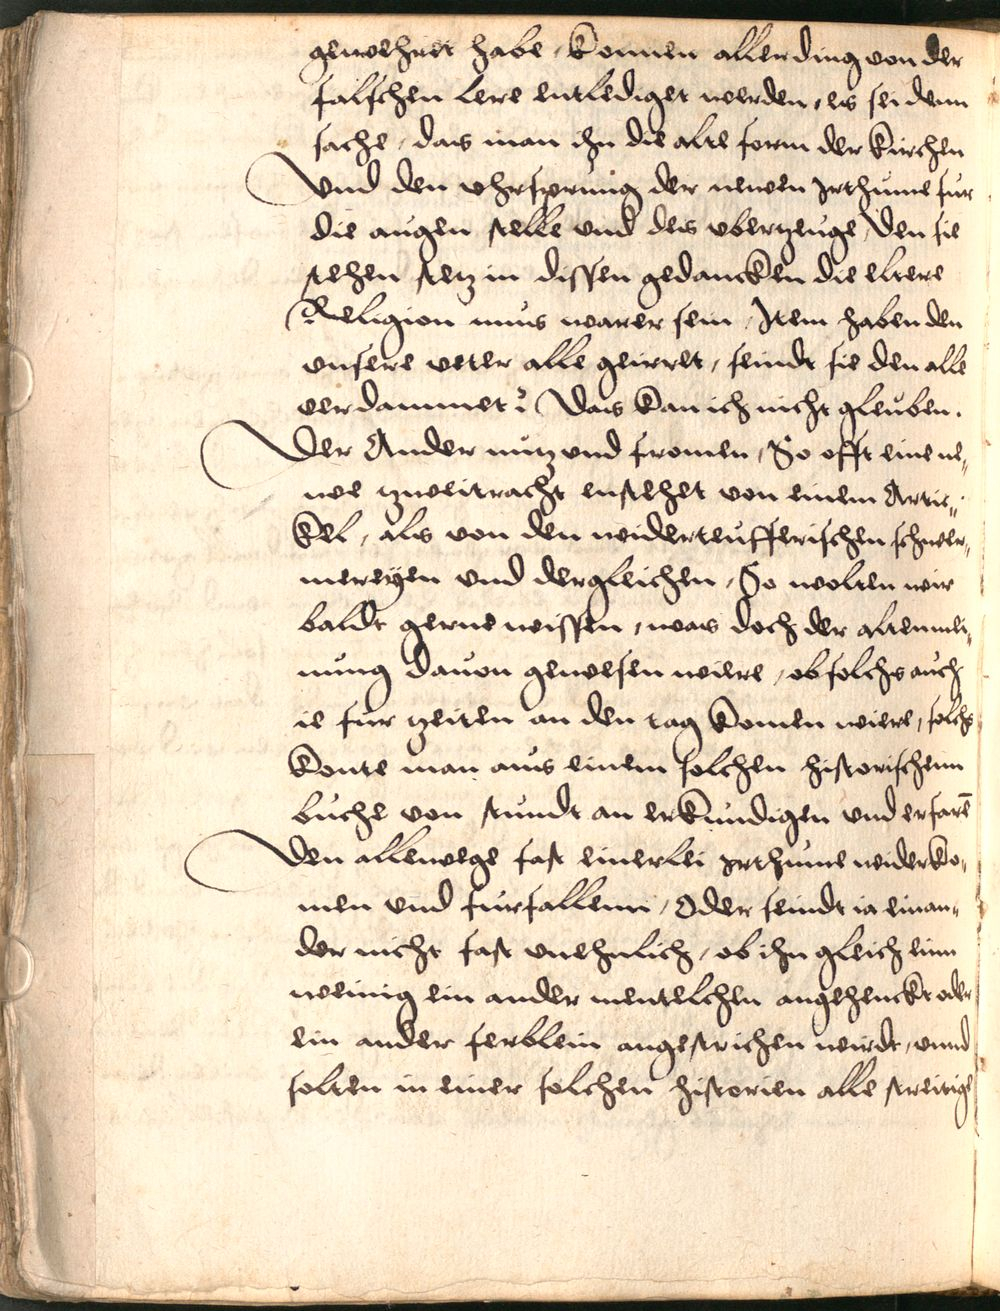 gewehret habe, konnen allerding von der
falschen lere entlediget werden, es sei denn
sache, das man ihn die alte form der kirchen
Vnd den vhrsprung der newen yrthume fur
die augen stelle vnd des vbertzeuge, Den sie
stehen stetz in dissen gedancken die eltere
Religion mus warer sein, Item haben den
vnsere veter alle geirret, seindt sie den alle
verdammet? Das kan ich nicht gleuben.
Der Ander nutz vnd fromen, So offt eine ne,,
we tzweitracht enstehet von einem Artic,,
kel, als von den widerteufferischen schwer,,
mereyen vnd dergleichen, So wolten wir
baldt gerne wissen, was doch der alten mei,,
nung dauon gewesen were, ob solchs auch
ie fur zeiten an den tag komen were, solchs
konte man aus einem solchen historischenn
buche von stundt an erkundigen vnd erfarē
Den allewege fast einerlei yrthume widerko,,
men vnd furfallenn, Oder seindt ia einan,,
der nicht fast vnehnlich, ob ihn gleich einn
weinig ein ander mentelchen angehenckt oder
ein ander ferblein angestrichen wirdt, vnnd
solten in einer solchen historien alle streitige